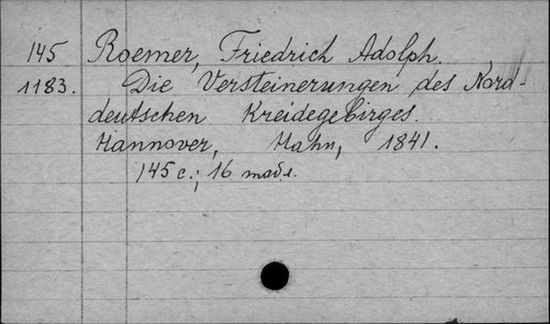 145 Roemer, Friedrich Adolph.
1183. Die Versteinerungen des Nord-
deutschen Kreidegebirges.
Hannover, Hahn, 1841.
145 c.; 16